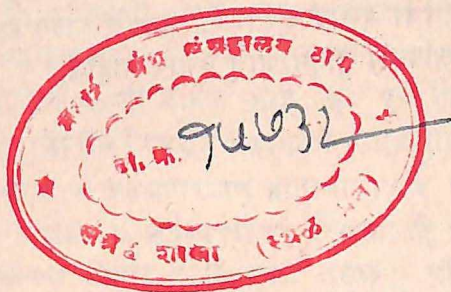 मराठी ग्रंथ संग्रहालय ठाणे
दा. क्र. १५७३२
संदर्भ शाखा (स्थळ प्रत)